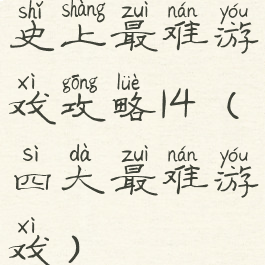 shǐ shàng zuì nán yóu
史上最难游
xì gōng lüè
戏攻略14（
sì dà zuì nán yóu
四大最难游
xì
戏）